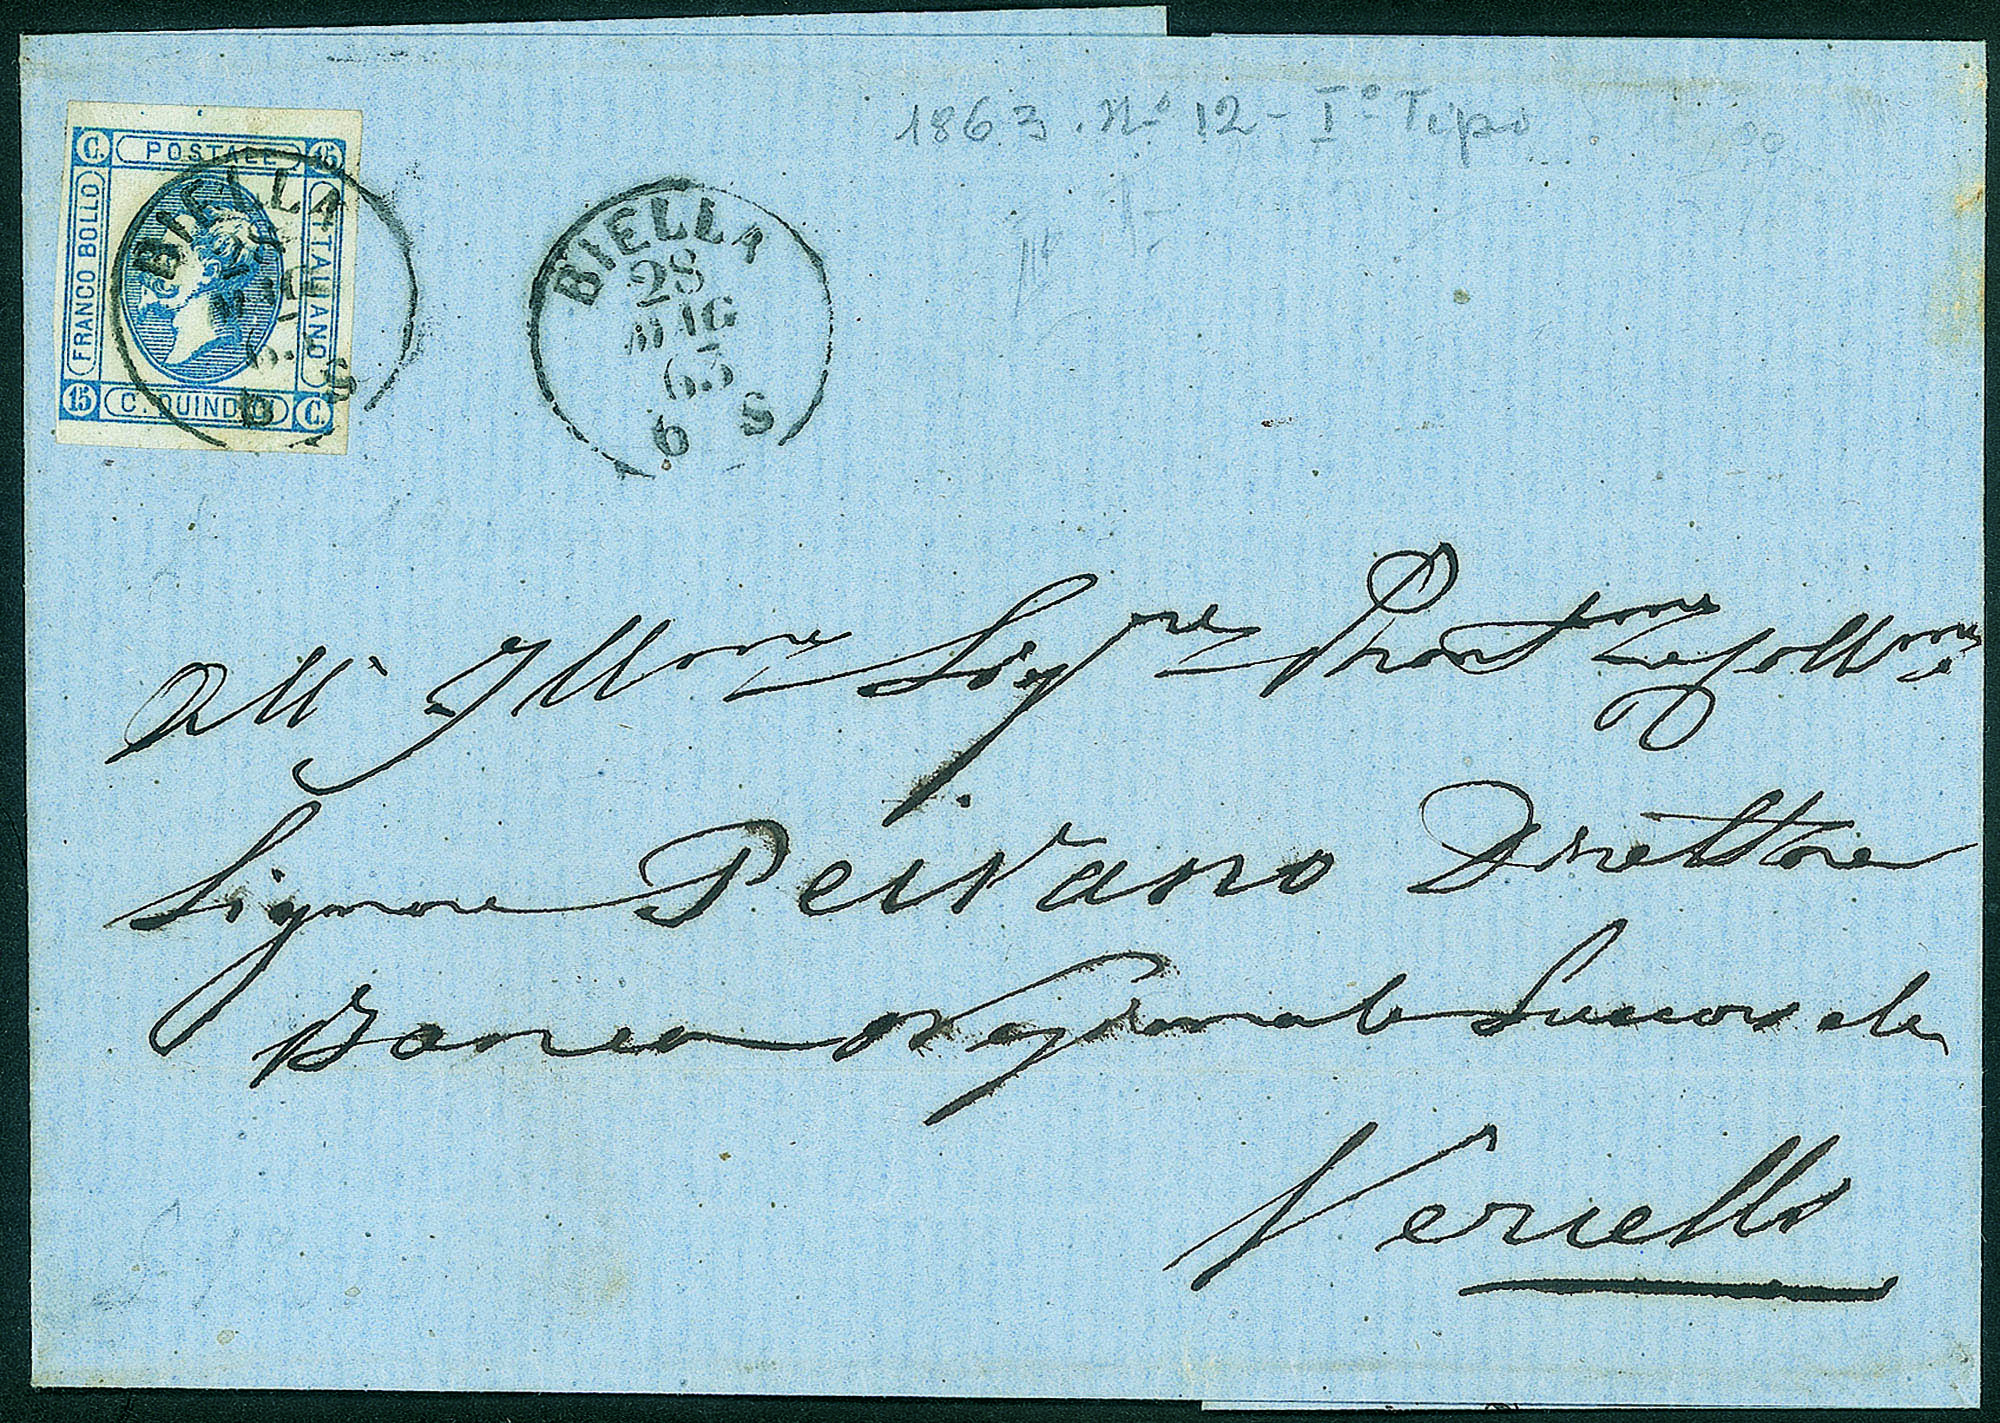 1863. Nº 12 - Iº Tipo
C. POSTALE 15
FRANCO BOLLO
ITALIANO
15 C. QUINDICI C.
BIELLA
28
MAG
63
6 S
BIELLA
28
MAG
63
6 S
All' Illmo Sigre Pron
Signore Peirano Direttore
Banca Nazionale Succursale
Vercelli